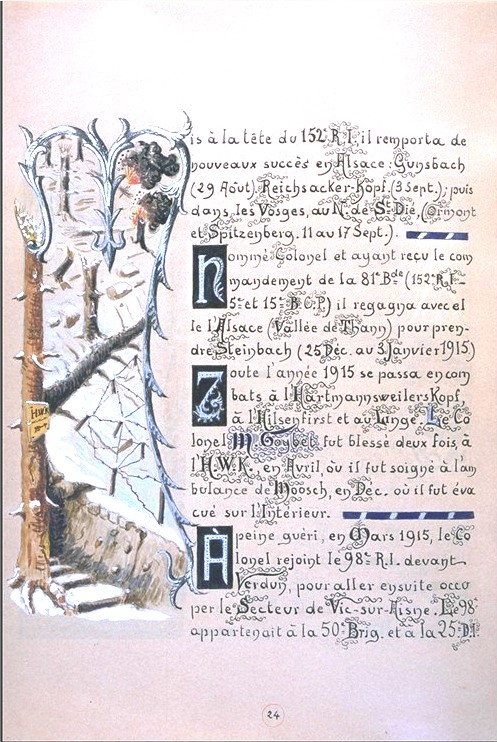 Mis à la tête du 152e R.I. il remporta de
nouveaux succès en Alsace : Gunsbach
(29 Août) Reichsacker-Kopf. (3 Sept.); puis
dans les Vosges, au N. de St Dié, (Ormont
et Spitzenberg. 11 au 17 Sept.).
Nommé Colonel et ayant reçu le com
mandement de la 81e Bde (152e R.I_
5e et 15e B.C.P) il regagna avec el
le l'Alsace (Vallée de Thann) pour pren-
dre Steinbach (25 Déc. au 3 Janvier 1915)
Toute l'année 1915 se passa en com
bats à l'Hartmannsweilers Kopf,
à l'Hilsenfirst et au Linge. Le Co
lonel M. Goybet fut blessé deux fois, à
l'H.W.K. en Avril, où il fut soigné à l'am
bulance de Moosch, en Déc. où il fut éva
cué sur l'Intérieur.
HWK
À peine guéri, en Mars 1915, le Co
lonel rejoint le 98e R.I. devant
Verdun, pour aller ensuite occu
per le Secteur de Vic-sur-Aisne. Le 98e
appartenait à la 50e Brig. et à la 25e D.I.
24